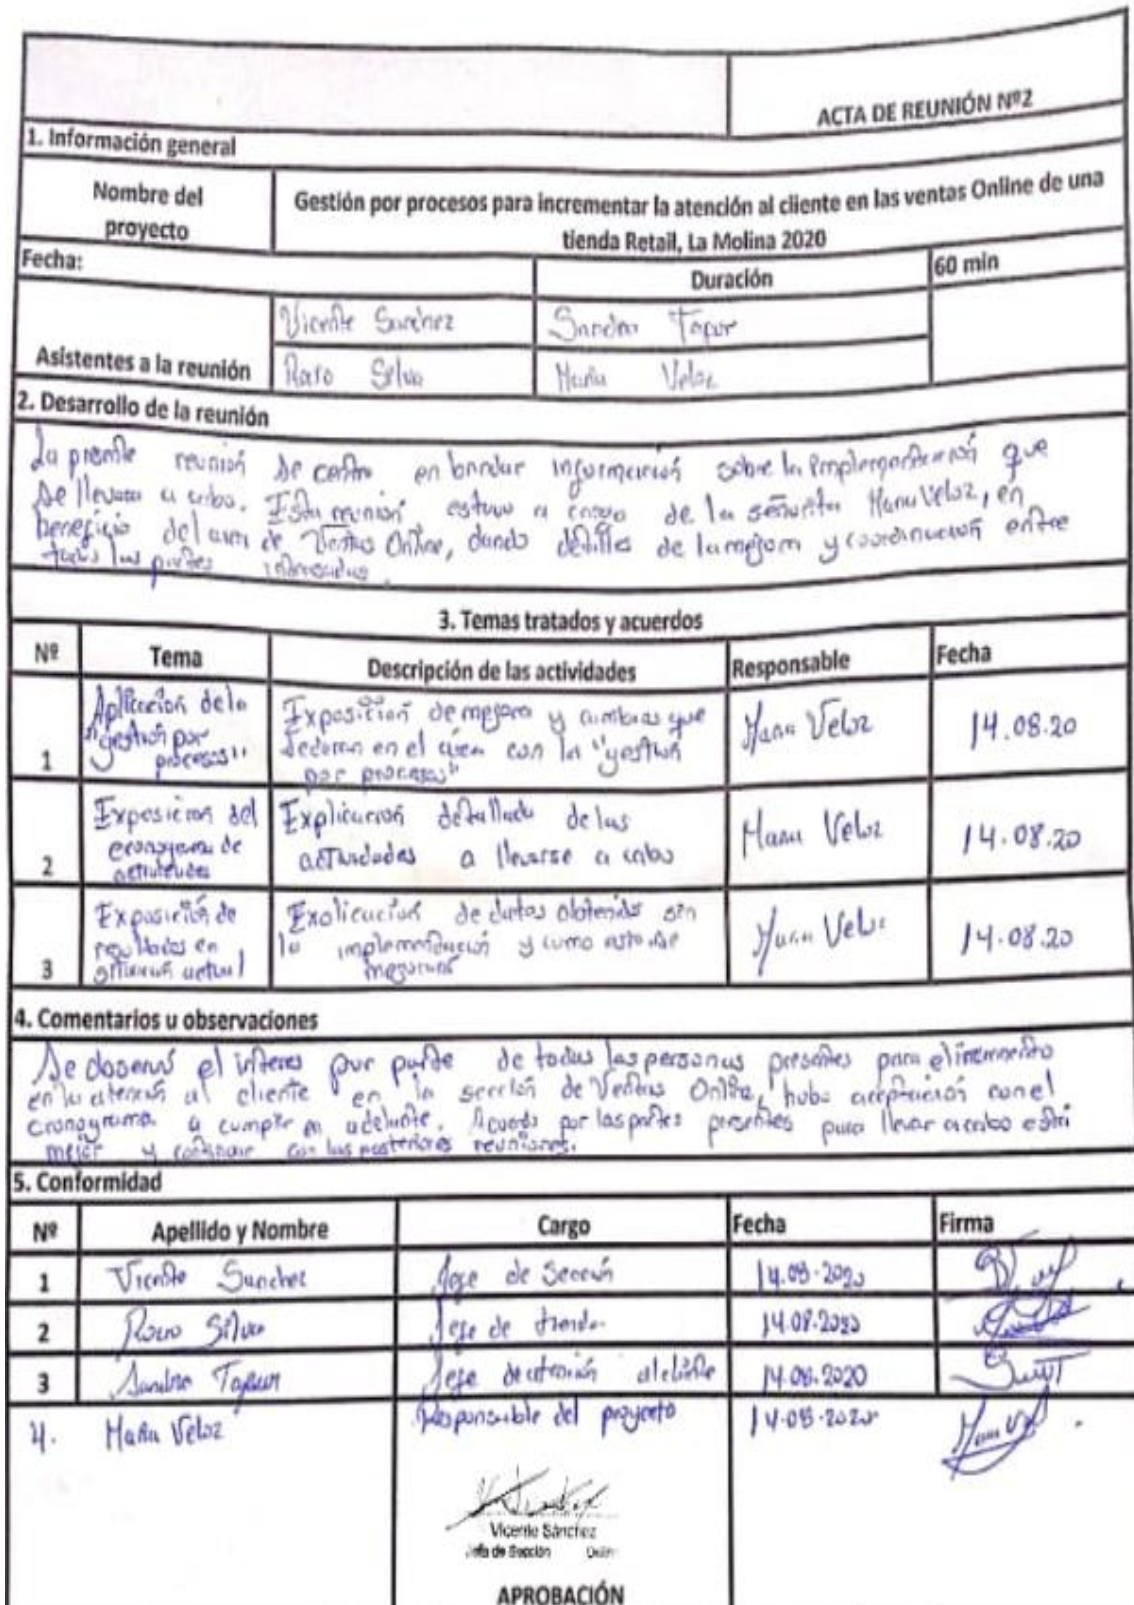 ACTA DE REUNIÓN Nº2
1. Información general
Nombre del proyecto
Gestión por procesos para incrementar la atención al cliente en las ventas Online de una
tienda Retail, La Molina 2020
Fecha:
Duración
60 min
Asistentes a la reunión
Vicente Sanchez
Silva
Veloz
2. Desarrollo de la reunión
La presente reunión se centro en brindar información sobre la implementación que
se llevara a cabo. Esta reunión estuvo a cargo de la señorita Veloz, en
beneficio del area de Ventas Online, dando detalles de la mejora y coordinación entre
todas las partes interesadas.
3. Temas tratados y acuerdos
Nº Tema Descripción de las actividades Responsable Fecha
1
Aplicación de la
"gestión por
procesos"
Exposición de mejora y cambios que
en el area con la "gestión
por procesos"
Veloz
14.08.20
2
Exposición del
de
actividades
Explicación detallada de las
actividades a llevarse a cabo
Veloz
14.08.20
3
Exposición de
resultados en
situación actual
Explicación de datos obtenidos sin
la implementación y como esto se
Veloz
14.08.20
4. Comentarios u observaciones
Se el interes por parte de todas las personas presentes para el incremento
en la atención al cliente en la sección de Ventas Online, hubo aceptación con el
cronograma a cumplir en adelante. Acuerdo por las partes presentes para llevar a cabo esta
y continuar con las posteriores reuniones.
5. Conformidad
Nº Apellido y Nombre Cargo Fecha Firma
1 Vicente Sanchez Jefe de Sección 14.08-2020
2 Silva Jefe de tienda 14.08.2020
3 Jefe de atención al cliente 14.08.2020
4. Veloz Responsable del proyecto 14-08-2020
Vicente Sánchez
Jefa de Sección
APROBACIÓN